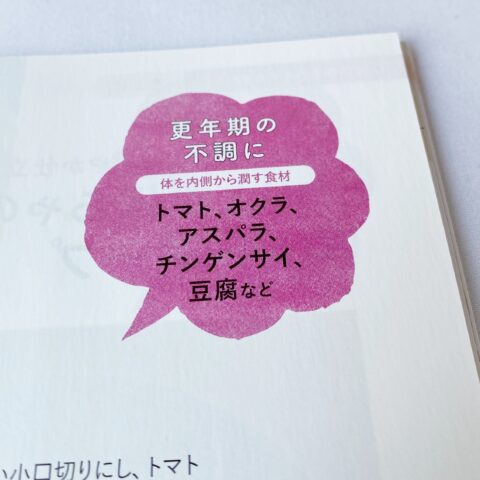 更年期の
不調に
体を内側から潤す食材
トマト、オクラ、
アスパラ、
チンゲンサイ、
豆腐など
い小口切りにし、トマト